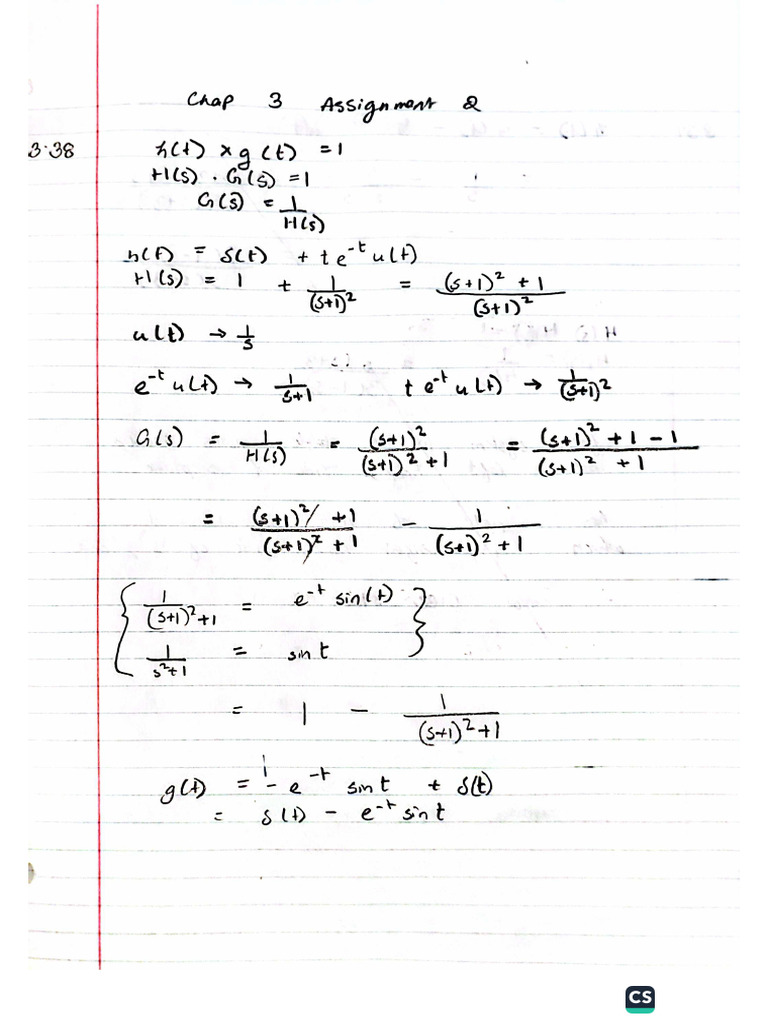 Chap 3 Assignment 2
3.38 h(t) * g(t) = 1
H(s) . G(s) = 1
G(s) = 1/H(s)
h(t) = δ(t) + t e^-t u(t)
H(s) = 1 + 1/(s+1)^2 = ((s+1)^2 + 1)/(s+1)^2
u(t) → 1/s
e^-t u(t) → 1/(s+1) t e^-t u(t) → 1/(s+1)^2
G(s) = 1/H(s) = (s+1)^2/((s+1)^2 + 1) = ((s+1)^2 + 1 - 1)/((s+1)^2 + 1)
= ((s+1)^2 + 1)/((s+1)^2 + 1) - 1/((s+1)^2 + 1)
{ 1/((s+1)^2+1) = e^-t sin(t) }
{ 1/(s^2+1) = sin t }
= 1 - 1/((s+1)^2+1)
g(t) = - e^-t sin t + δ(t)
= δ(t) - e^-t sin t
CS